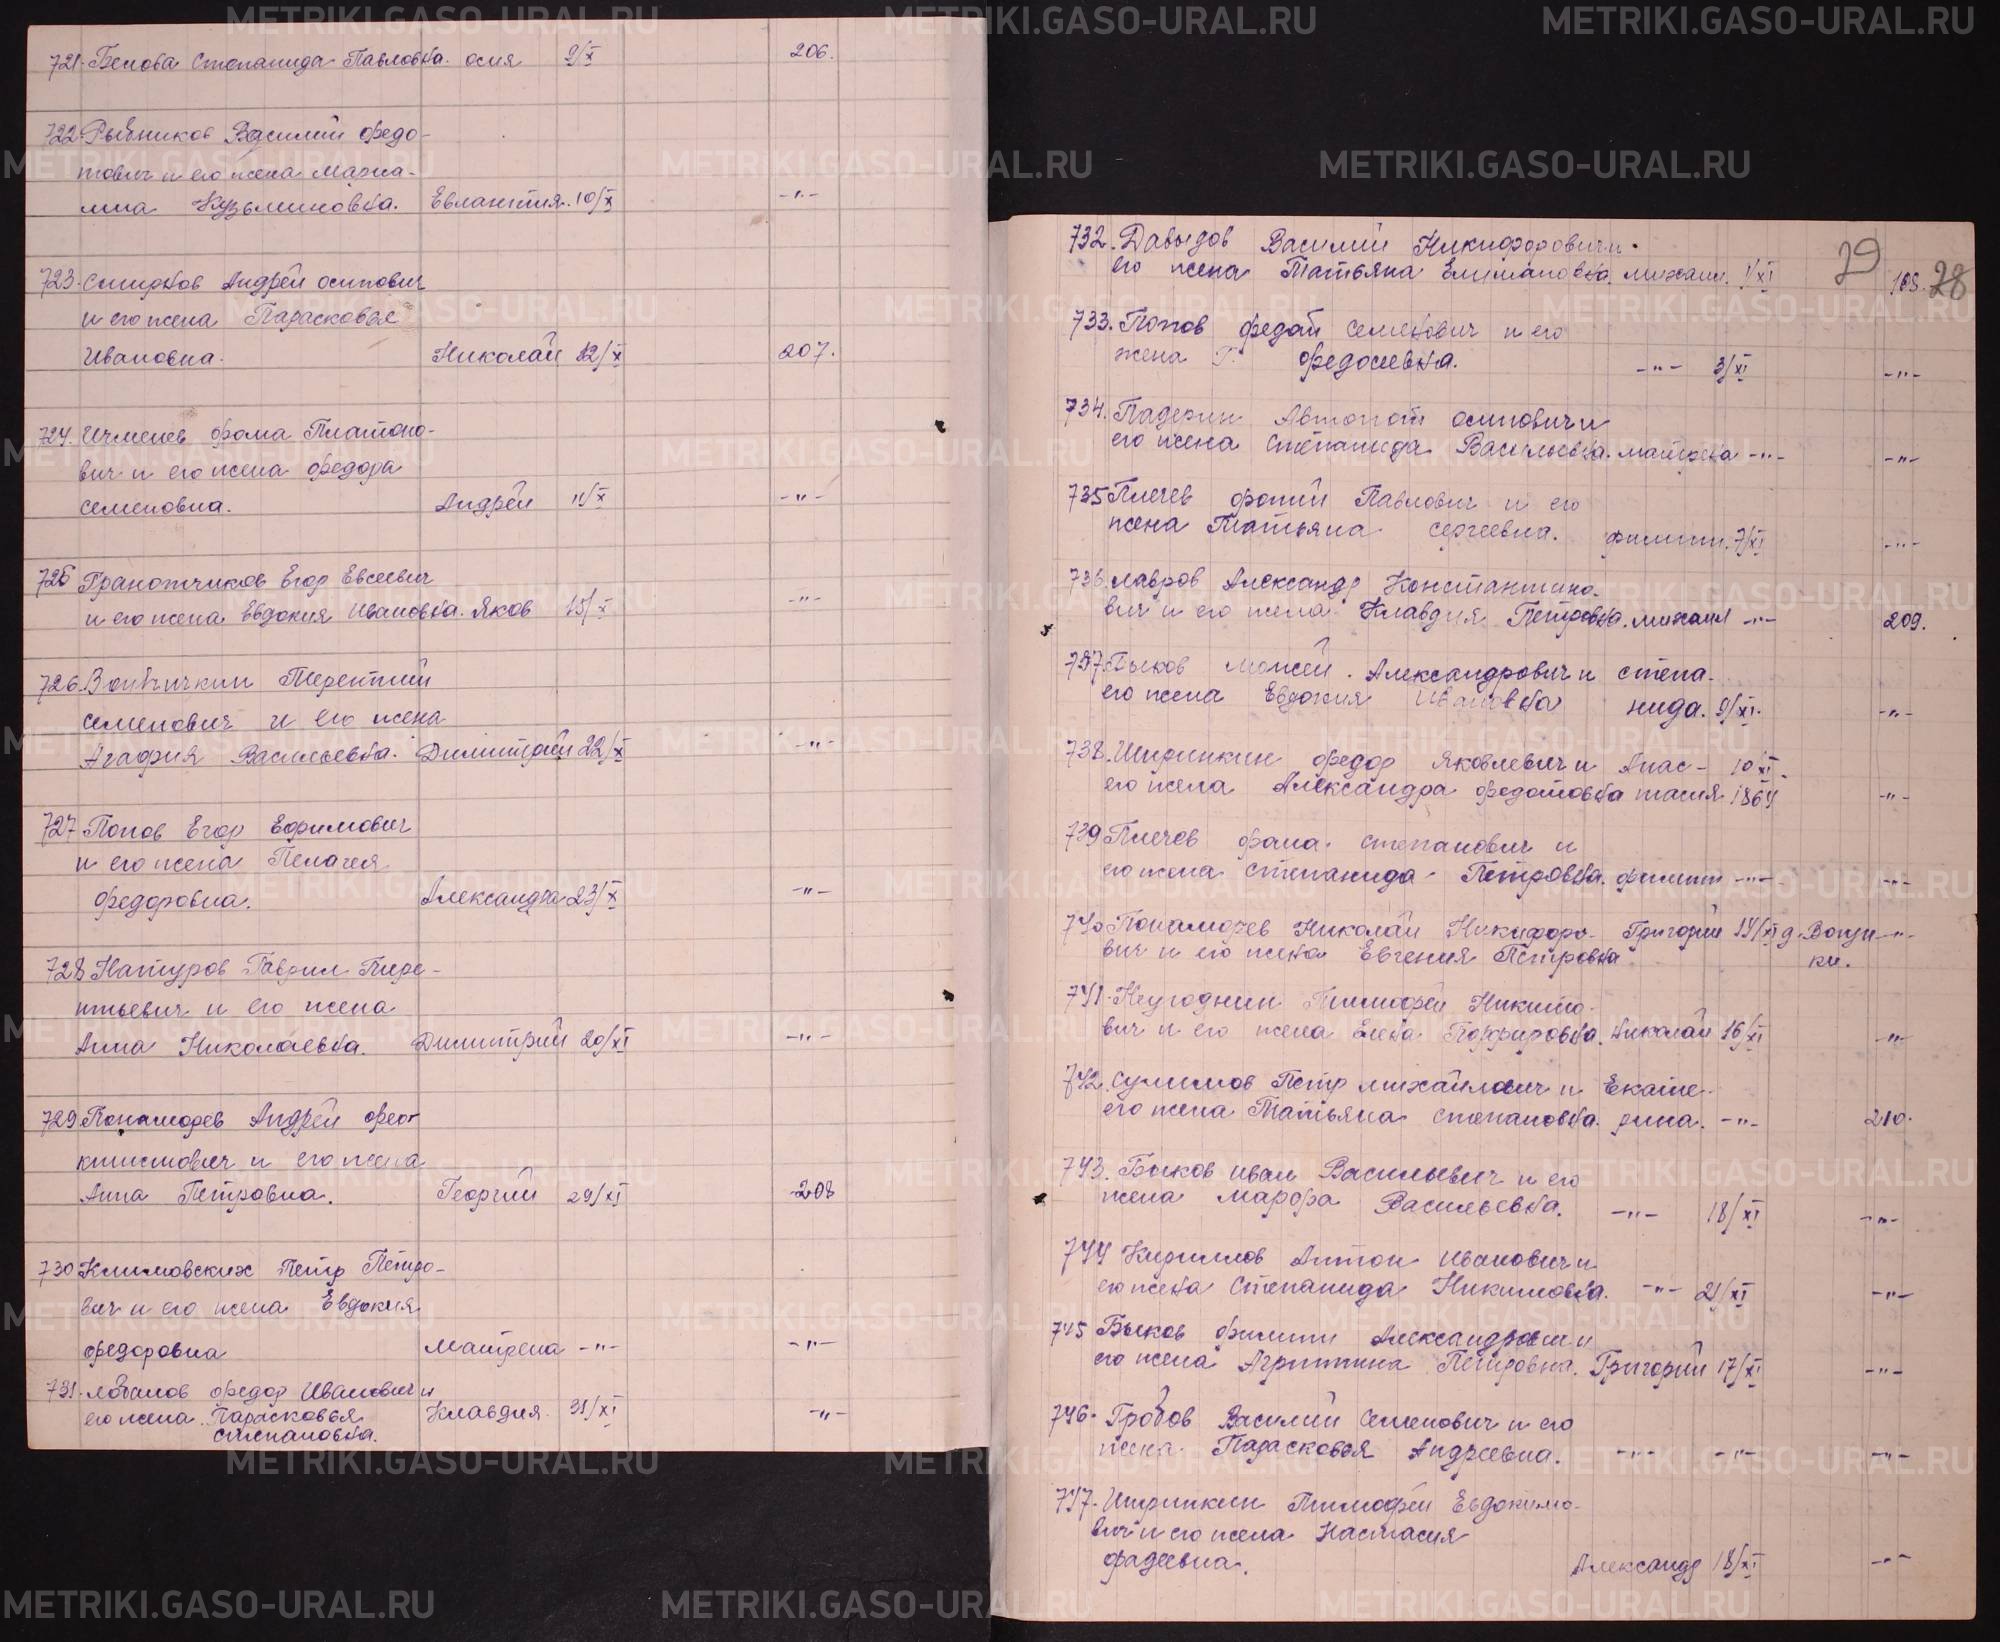 721. Белова Степанида Павловна. 9/X 206.
722. Рыбников Василий Федо-
тович и его жена
Кузьминовна. 10/X -"-
723. Андрей Осипович
и его жена Парасковья
Ивановна. Николай 12/X 207.
724. Ичменев Фома Платоно-
вич и его жена Федора
Семеновна. Андрей 11/X -"-
725 Егор Евсеевич
и его жена Евдокия Ивановна. Яков 15/X -"-
726. Терентий
Семенович и его жена
Агафия Васильевна. Димитрий 22/X -"-
727 Попов Егор Ефимович
и его жена Пелагея
Федоровна. Александра 23/X -"-
728 Гаврил Тире-
нтьевич и его жена
Анна Николаевна. Димитрий 20/XI -"-
729 Пономорев Андрей Феок-
тистович и его жена
Анна Петровна. Георгий 29/XI 208
730 Климовских Петр Петро-
вич и его жена Евдокия
Федоровна Матрена -"- -"-
731. Лобанов Федор Иванович и
его жена Парасковья Клавдия. 31/XI -"-
Степановна.
29 28
732. Давыдов Василий Никифорович и
его жена Татьяна Михаил. 1/XI
733. Попов Федот Семенович и его
жена Федосеевна. -"- 3/XI -"-
734. Падерин Осипович и
его жена Степанида Васильевна. Матрена -"- -"-
735 Плечев Фотий Павлович и его
жена Татьяна Сергеевна. Филипп. 7/XI -"-
736. Лавров Александр Константино-
вич и его жена Клавдия Петровна. Михаил -"- 209.
737. Моисей Александрович и Степа-
его жена Евдокия Ивановна нида. 9/XI. -"-
738. Ширинкин Федор Яковлевич и Анас- 10 XI.
его жена Александра Федотовна тасия 1864 -"-
739 Плечев Фома Степанович и
его жена Степанида Петровна. Филипп -"- -"-
740 Пономорев Николай Никифоро- Григорий 14/XI -"-
вич и его жена Евгения Петровна
741. Неугоднин Тимофей Никито-
вич и его жена Елена Порфировна. Николай 16/XI -"-
742. Сулимов Петр Михайлович и Екате-
его жена Татьяна Степановна. рина. -"- 210.
743. Быков Иван Васильевич и его
жена Марфа Васильевна. -"- 18/XI -"-
744 Кириллов Антон Иванович и
его жена Степанида Никитовна. -"- 21/XI -"-
745 Быков Филипп Александрович и
его жена Агриппина Петровна. Григорий 17/XI -"-
746. Гробов Василий Семенович и его
жена Парасковья Андреевна. -"- -"- -"-
747. Ширинкин Тимофей Евдокимо-
вич и его жена Настасия
Фадеевна. Александр 18/XI -"-
METRIKI.GASO-URAL.RU